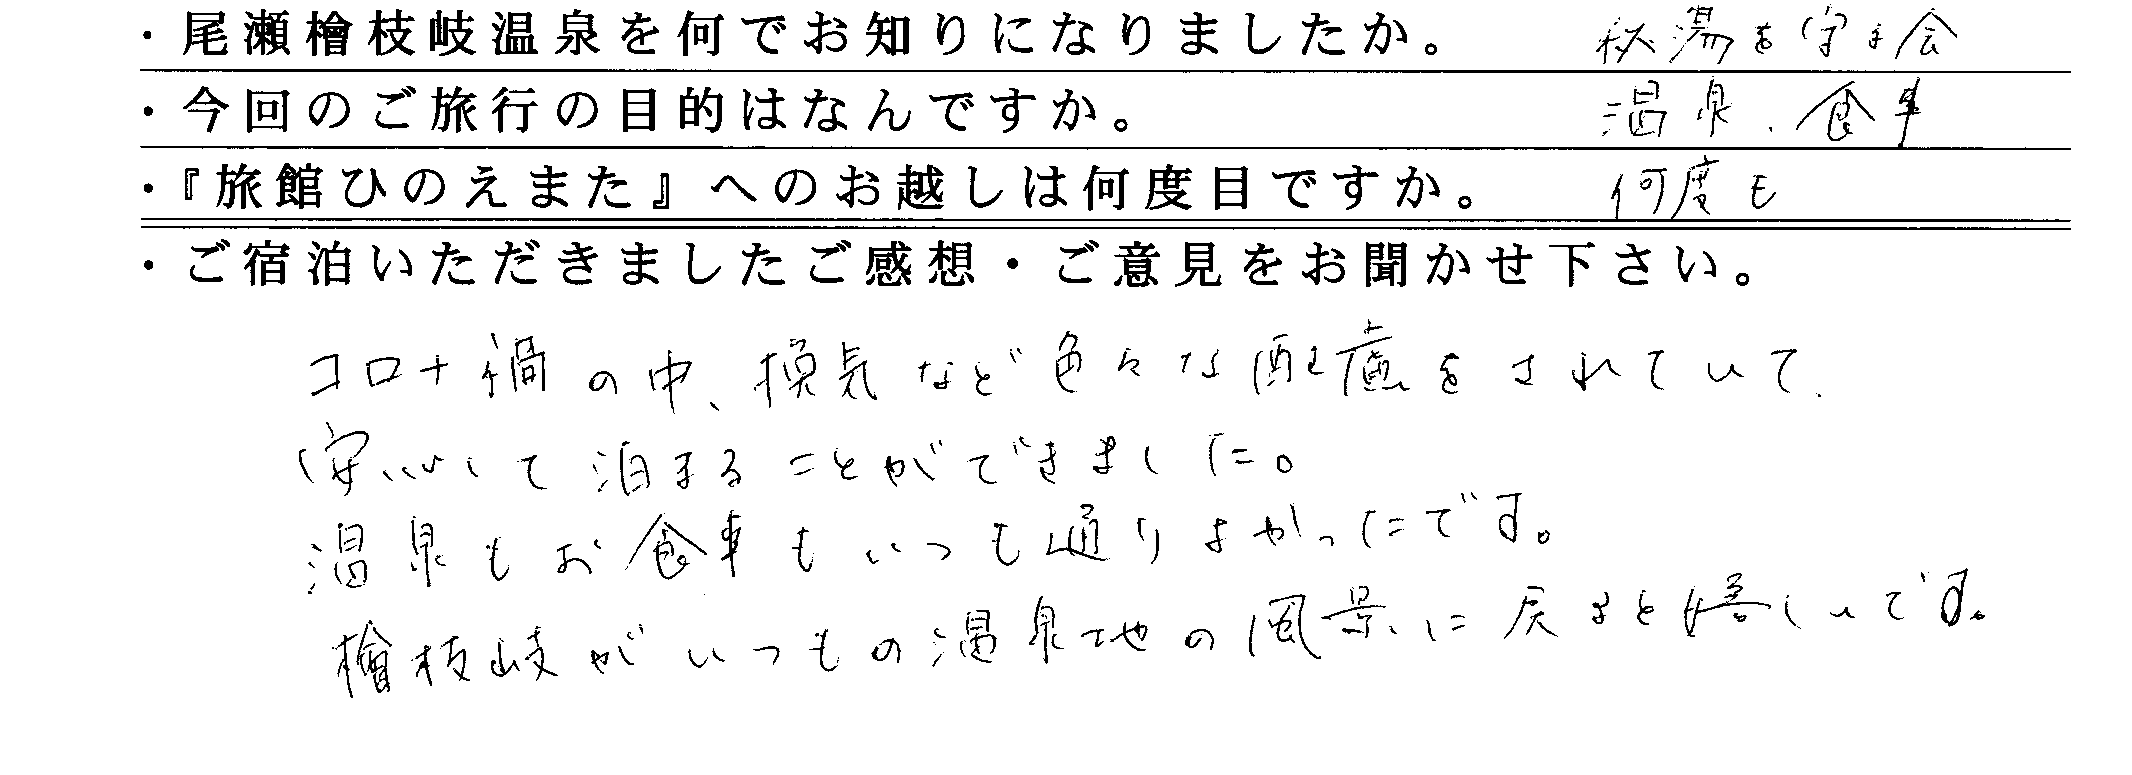 ・尾瀬檜枝岐温泉を何でお知りになりましたか。 秘湯を守る会
・今回のご旅行の目的はなんですか。 温泉、食事
・『旅館ひのえまた』へのお越しは何度目ですか。 何度も
・ご宿泊いただきましたご感想・ご意見をお聞かせ下さい。
コロナ禍の中、換気など色々な配慮をされていて、
安心して泊まることができました。
温泉もお食事もいつも通りよかったです。
檜枝岐がいつもの温泉地の風景に戻ると嬉しいです。